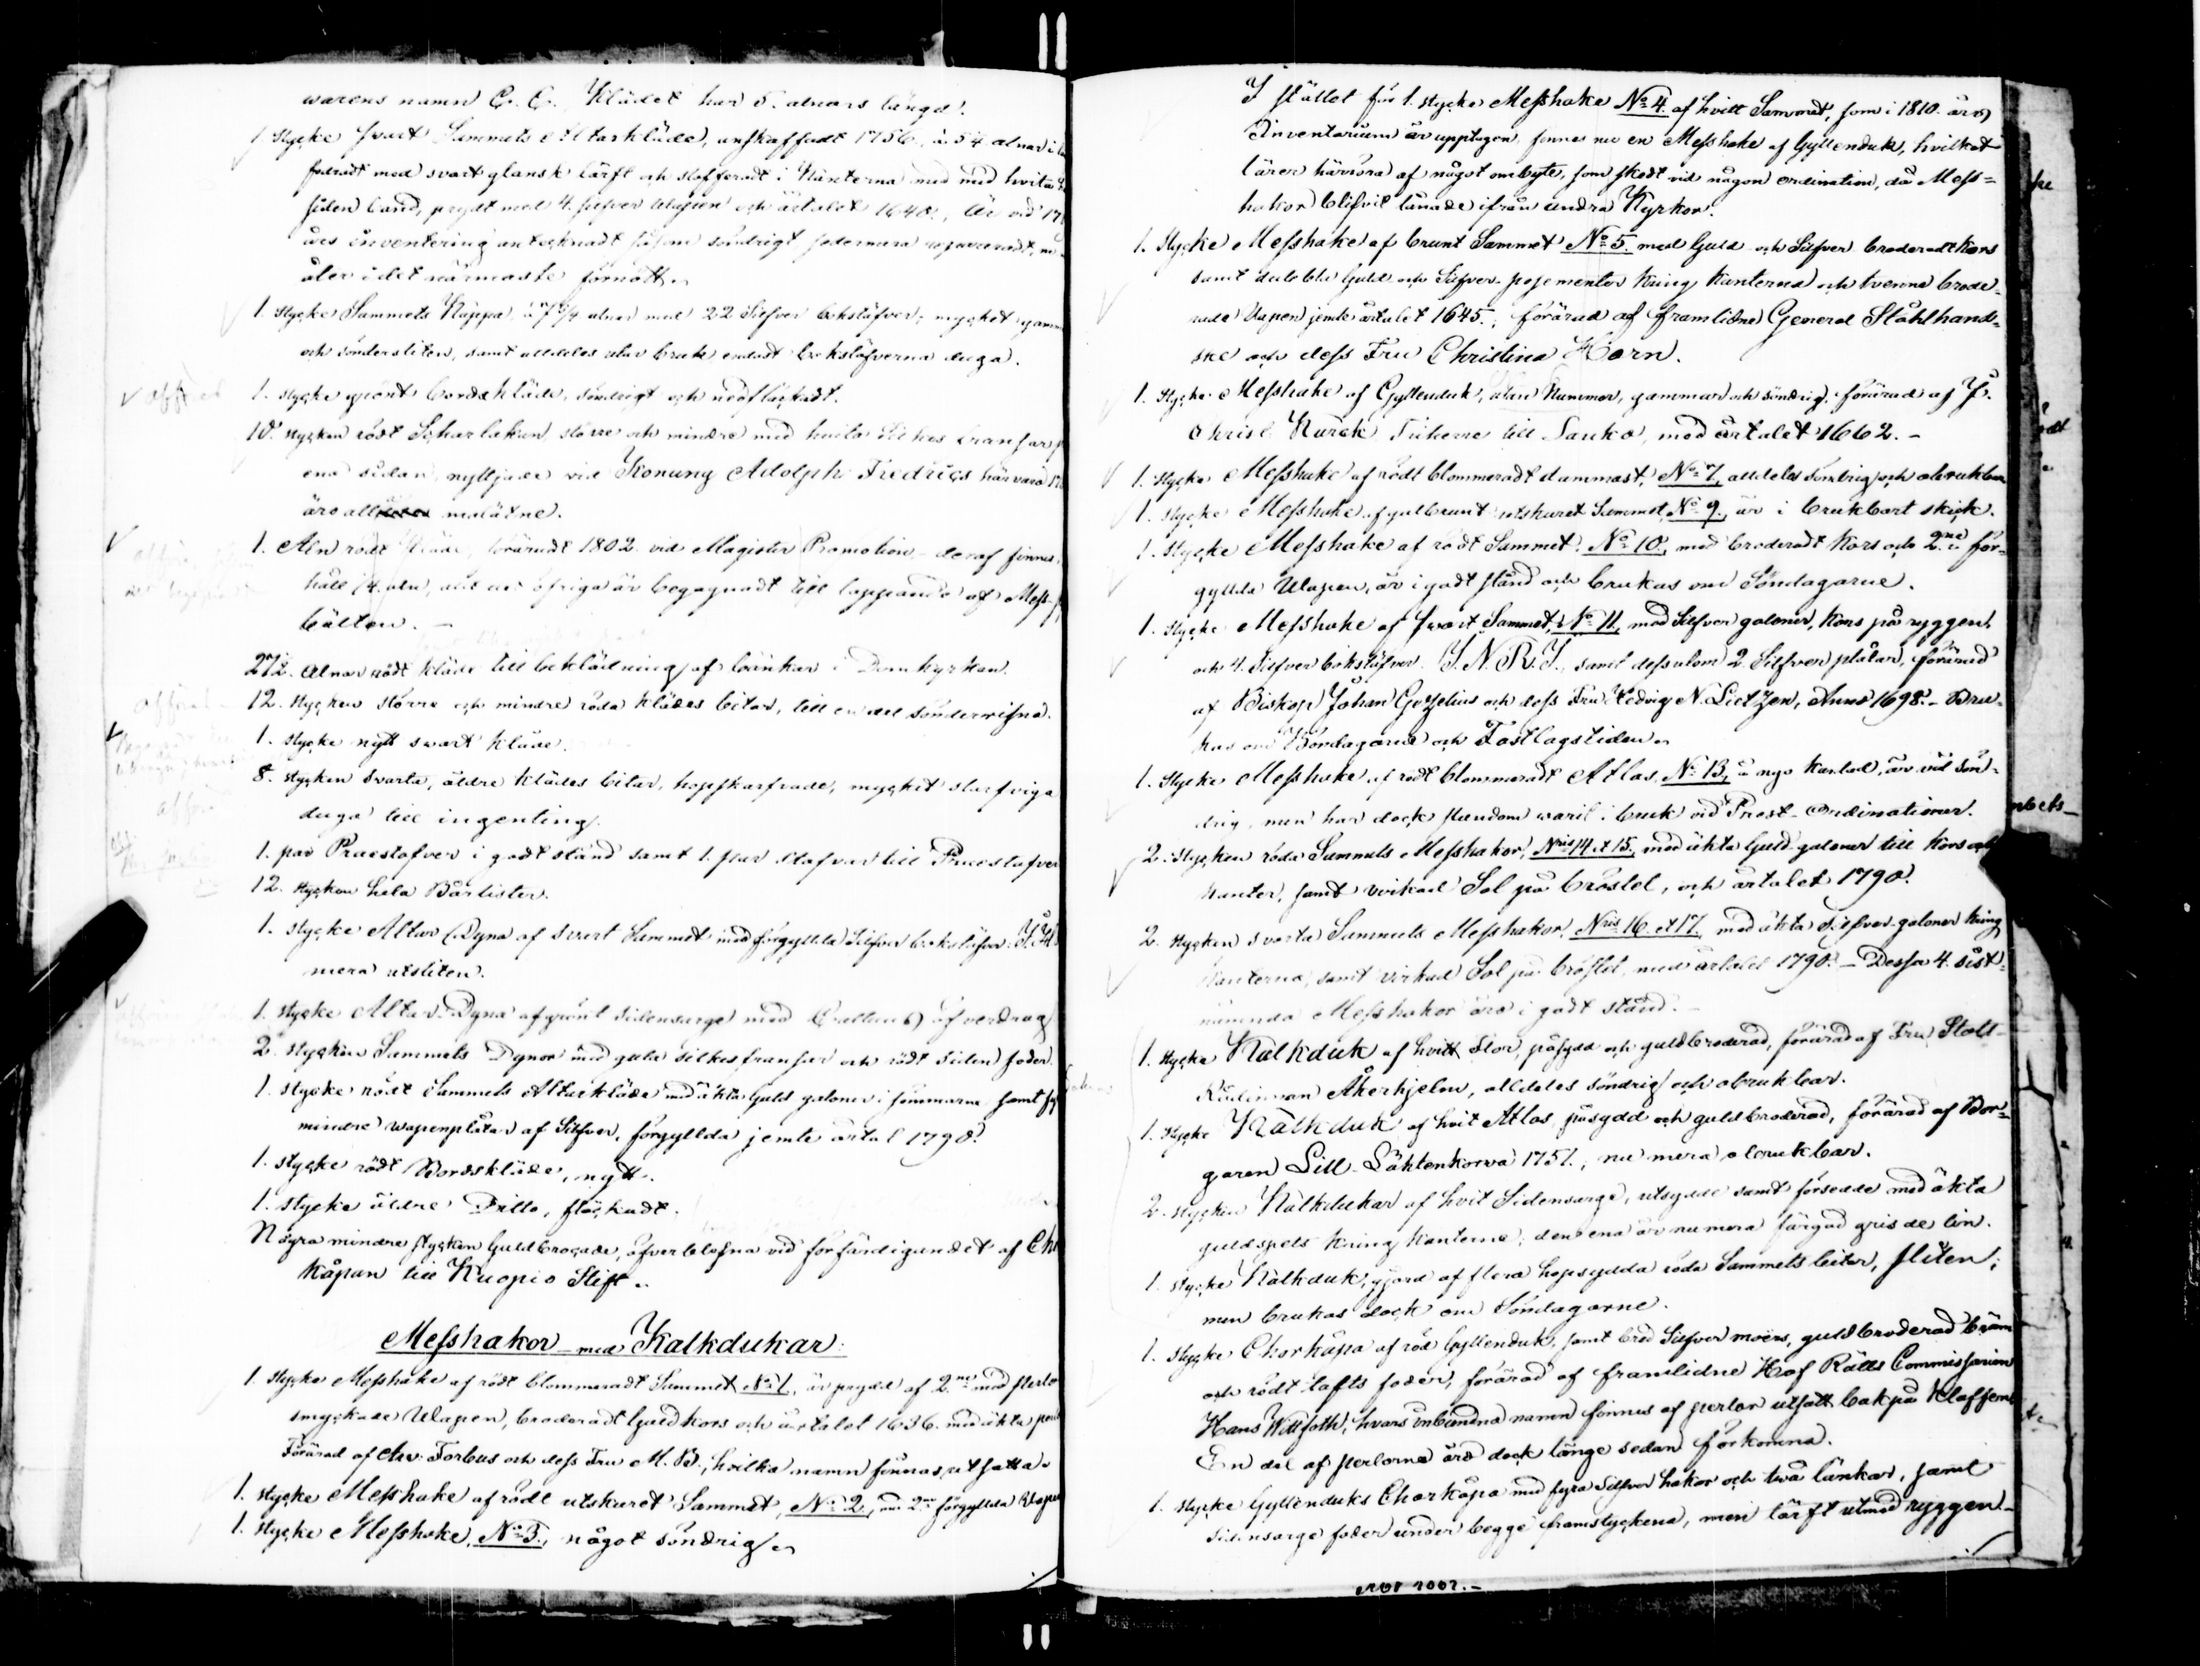 warens namn C. C. Klädet har 5. alnars längd.
1 stycke svart Sammets Altarkläde, anskaffadt 1756, à 5 4 alnar i
fodradt med svart glansk lärft och stofferadt i Känterna med hvita
siden band, prydt med 4. silfver Wapen och årtalet 1648., är vid 17
års inventering antecknadt såsom söndrigt sedermera repareradt, nu
åter i det närmaste förnött.
1. stycke Sammets Kappa, alnar med 22 Silfver bokstäfver, mycket gammal
och söndersliten, samt alldeles utur bruk endast bokstäfverna duga.
1. stycke grönt bordskläde, söndrigt och nedfläckadt.
10. stycken rödt Scharlakan större och mindre med hvita Silkes fransar
ena sidan, nyttjade vid Konung Adolph Fredrics härvaro
äro all malätne.
1. Aln rödt Kläde, föräradt 1802. vid Magister Promotion, deraf finnes
håll /4. aln, allt det öfriga är begagnadt till lappande af Mess-
bälten. —
27½. Alnar rödt kläde till beklädning af bänkar i Domkyrkan.
12. stycken större och mindre röda klädes bitar, till en del sönderrifna.
1. stycke nytt swart kläde.
8. stycken svarta, äldre klädes bitar, hopskarfvade, myckit slarfviga
duga till ingenting.
1. par Praestafver i godt stånd samt 1. par stafvar till Praestafver
12. stycken hela Bårlister.
1. stycke Altar Dyna af svart Sammet med förgyllda Silfver bokstäfver
mera utsliten.
1. stycke Altar-Dyna af grönt sidensarge med öfverdrag
2. stycken Sammets Dynor med gula silkesfransar och rödt siden foder.
1. stycke rödt Sammets Altarkläde med äkta Guld galoner i sömmarne samt
mindre wapenplåtar af Silfver, förgyllda jemte årtal 1790.
1. stycke rödt Bordskläde, nytt.
1. stycke äldre Ditto, fläckadt.
Några mindre stycken Guldbrocade, öfverblefna vid förfärdigandet af Chor
kåpan till Kuopio Stift.
Messhakor med Kalkdukar.
1. stycke Messhake af rödt blommeradt Sammet No 1, är prydd af 2.ne med perlor
smyckade Wapen, broderadt Guldkors och årtalet 1636. med äkta
Förärad af Arv: Forbus och dess Fru M. B., hvilka namn finnas utsatta.
1. stycke Messhake af rödt utskuret Sammet, No 2., med 2.ne förgyllda Wapen
1. stycke Messhake, No 3., något söndrig.
I stället för 1. stycke Messhake No 4. af hvitt Sammet, som i 1810. års
Inventarium är upptagen, finnes nu en Messhake af Gyllenduk, hvilket
lärer härröra af något ombyte, som skedt vid någon ordination, då Mess-
hakor blifvit lånade ifrån andra Kyrkor.
1. Stycke Messhake af brunt Sammet No 5. med Guld och Silfver broderadt kors
samt dubbla Guld och Silfver-posementer kring Kanterna och tvenne brode-
rade Wapen jemte årtalet 1645., förärad af framlidne General Stålhand-
ske och dess Fru Christina Horn.
1. Stycke Messhake af Gyllenduk, utan Nummer, gammal och söndrig, förärad af
Christ. Kurck Friherre till Lauko, med årtalet 1662. -
1. stycke Messhake af rödt blommeradt dammast, No 7, alldeles söndrig och obrukbar
1. stycke Messhake af gulbrunt utskuret Sammet, No 9., är i brukbart skick.
1. stycke Messhake af rödt Sammet, No 10., med broderadt Kors och 2.ne för-
gyllda Wapen, är i godt stånd och brukas om Söndagarne.
1. stycke Messhake af svart Sammet, No 11, med Silfver galoner, Kors på ryggen,
och 4. Silfver bokstäfver J. N. R. J., samt dessutom 2. Silfver plåtar, förärad
af Biskop Johan Gezelius och dess Fru Hedvig N. Lietzen, Anno 1698. - Bru-
kas om Böndagarne och Fastlagstiden.
1. Stycke Messhake af rödt blommeradt Atlas, No 13, å nyo kantad, är väl sön-
drig, men har dock stundom warit i bruk vid Prest-Ordinationer.
2. Stycken röda Sammets Messhakor, Nris 14. et 15., med äkta Guld galoner till Kors och
Kanter, samt wirkad Sol på bröstet, och årtalet 1790.
2. stycken svarta Sammets Messhakor, Nris 16. et 17. med äkta Silfver-galoner kring
Kanterna, samt virkad Sol på bröstet, med årtalet 1790. — Dessa 4. sist-
nämnda Messhakor äro i godt stånd. —
1. stycke Kalkduk af hvitt flor, påsydd och guldbroderad, förärad af Fru Stats-
Rådinnan Åkerhjelm, alldeles söndrig och obrukbar.
1. stycke Kalkduk af hvit Atlas, påsydd och guldbroderad, förärad af Bor-
garen Lill-Lähtenkorva 1751., nu mera obrukbar.
2. stycken Kalkdukar af hvit Sidensarge, utsydde samt försedde med äkta
guldspets kring kanterne, den ena är nu mera färgad gris de lin.
1. stycke Kalkduk, gjord af flera hopsydda röda Sammets bitar, sliten;
men brukas dock om Söndagarne.
1. stycke Chorkåpa af röd Gyllenduk, samt bred Silfver moërs, guldbroderad bräm
och rödt tafts foder, förärad af framlidne Hof Rätts Commissarien
Hans Wittfoth, hvars inbundna namn finnes af perlor utsatt bak på Klaffen.
En del af perlorne äro dock länge sedan förkomna.
1. stycke Gyllenduks Chorkåpa med fyra Silfver hakor och två länkar, samt
Sidensarge foder under begge framstyckena, men lärft utmed ryggen-